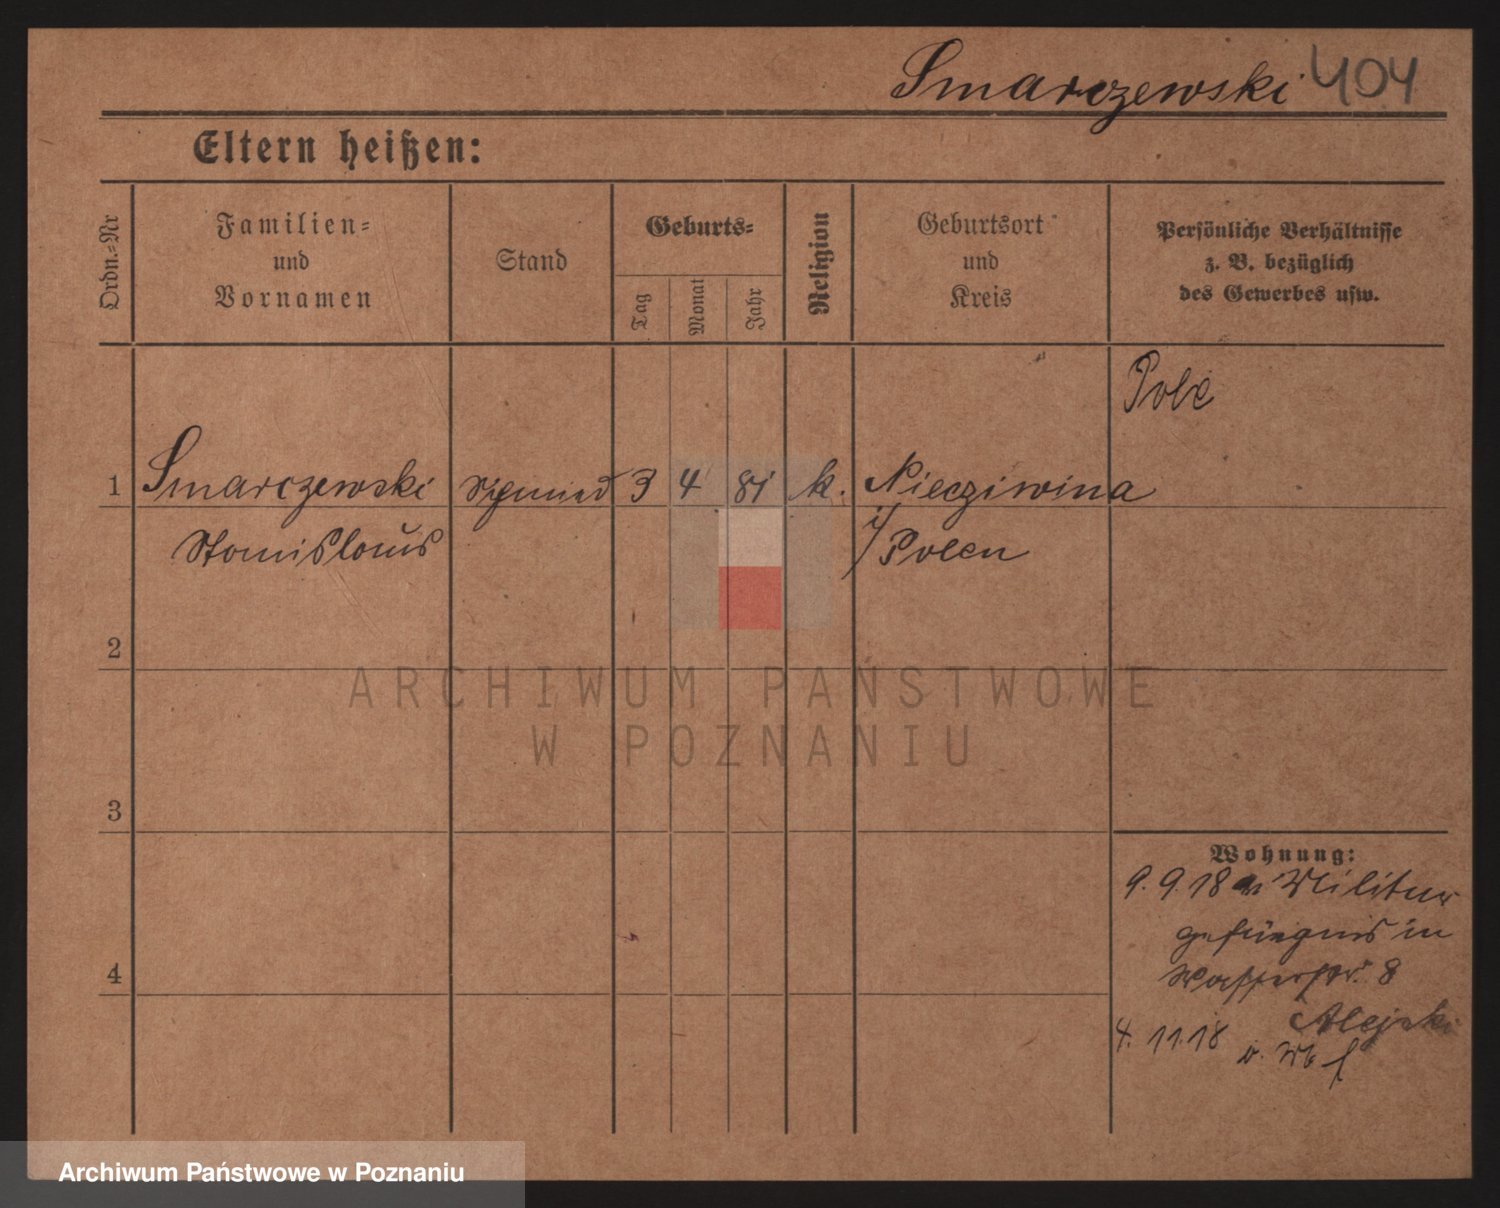 Smarczewski 404
Eltern heißen:
Ordn.=Nr
Familien=
und
Vornamen
Stand
Geburts=
Tag
Monat
Jahr
Religion
Geburtsort
und
Kreis
Persönliche Verhältnisse
z. B. bezüglich
des Gewerbes usw.
Pole
1 Smarczewski 3 4 81 k. Niecziwina
Stanislaus i/Polen
2
3
4
Wohnung:
9.9.18 Militär
gefängnis in
Wasserstr. 8
Alejski
4.11.18
ARCHIWUM PAŃSTWOWE
W POZNANIU
Archiwum Państwowe w Poznaniu